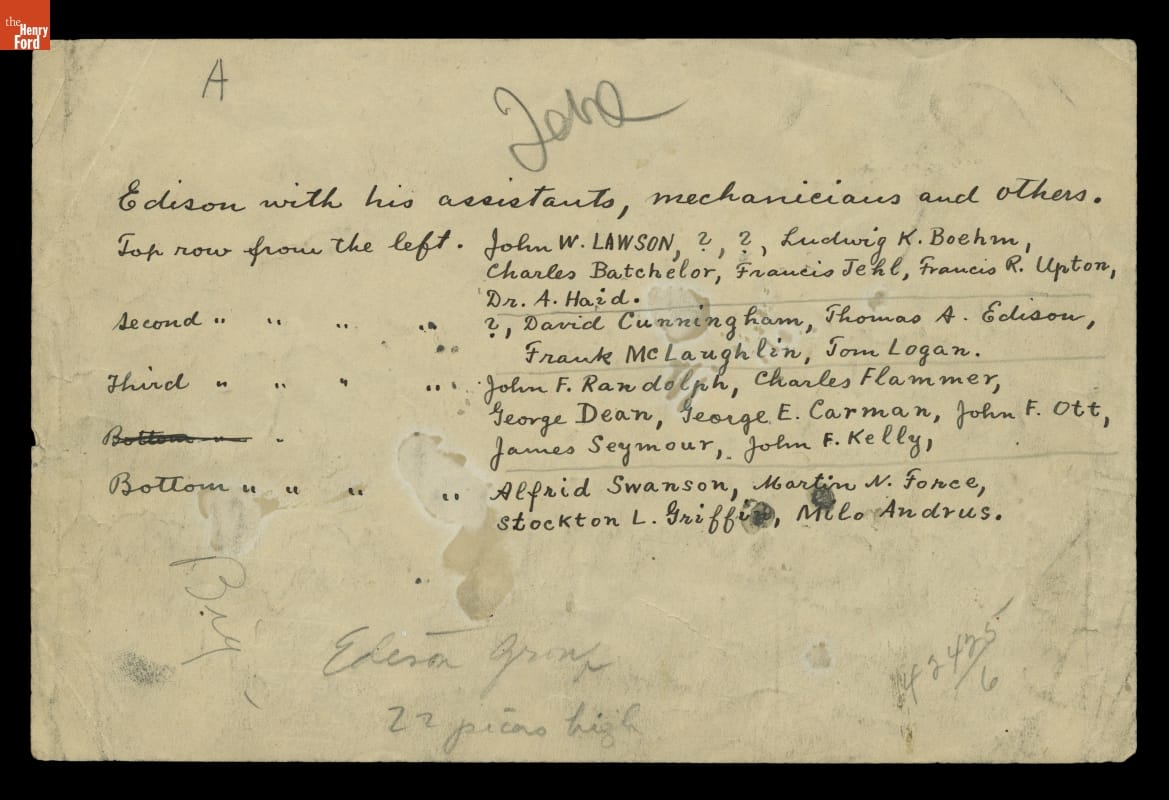 the
Henry
Ford
A
Edison with his assistants, mechanicians and others.
Top row from the left. John W. LAWSON, ?, ?, Ludwig K. Boehm,
Charles Batchelor, Francis Jehl, Francis R. Upton,
Dr. A. Haid.
Second " " " " ?, David Cunningham, Thomas A. Edison,
Frank McLaughlin, Tom Logan.
Third " " " " John F. Randolph, Charles Flammer,
George Dean, George E. Carman, John F. Ott,
Bottom " " James Seymour, John F. Kelly,
Bottom " " " " Alfrid Swanson, Martin N. Force,
Stockton L. Griffin, Milo Andrus.
Big
Edison Group
22 picas high
42425/6